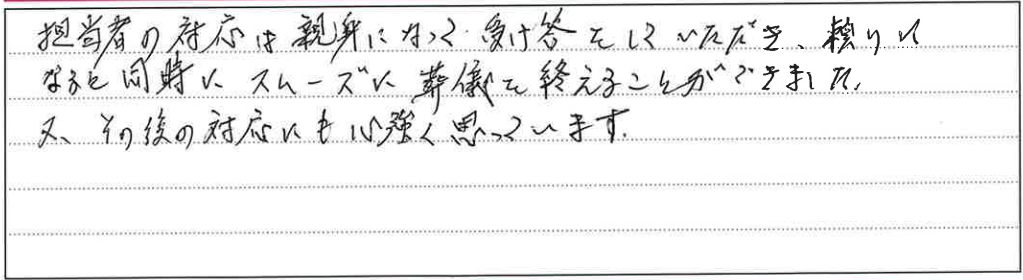 担当者の対応は親身になって受け答をしていただき、頼りに
なると同時に スムーズに葬儀を終えることができました。
又、その後の対応にも心強く思っています。